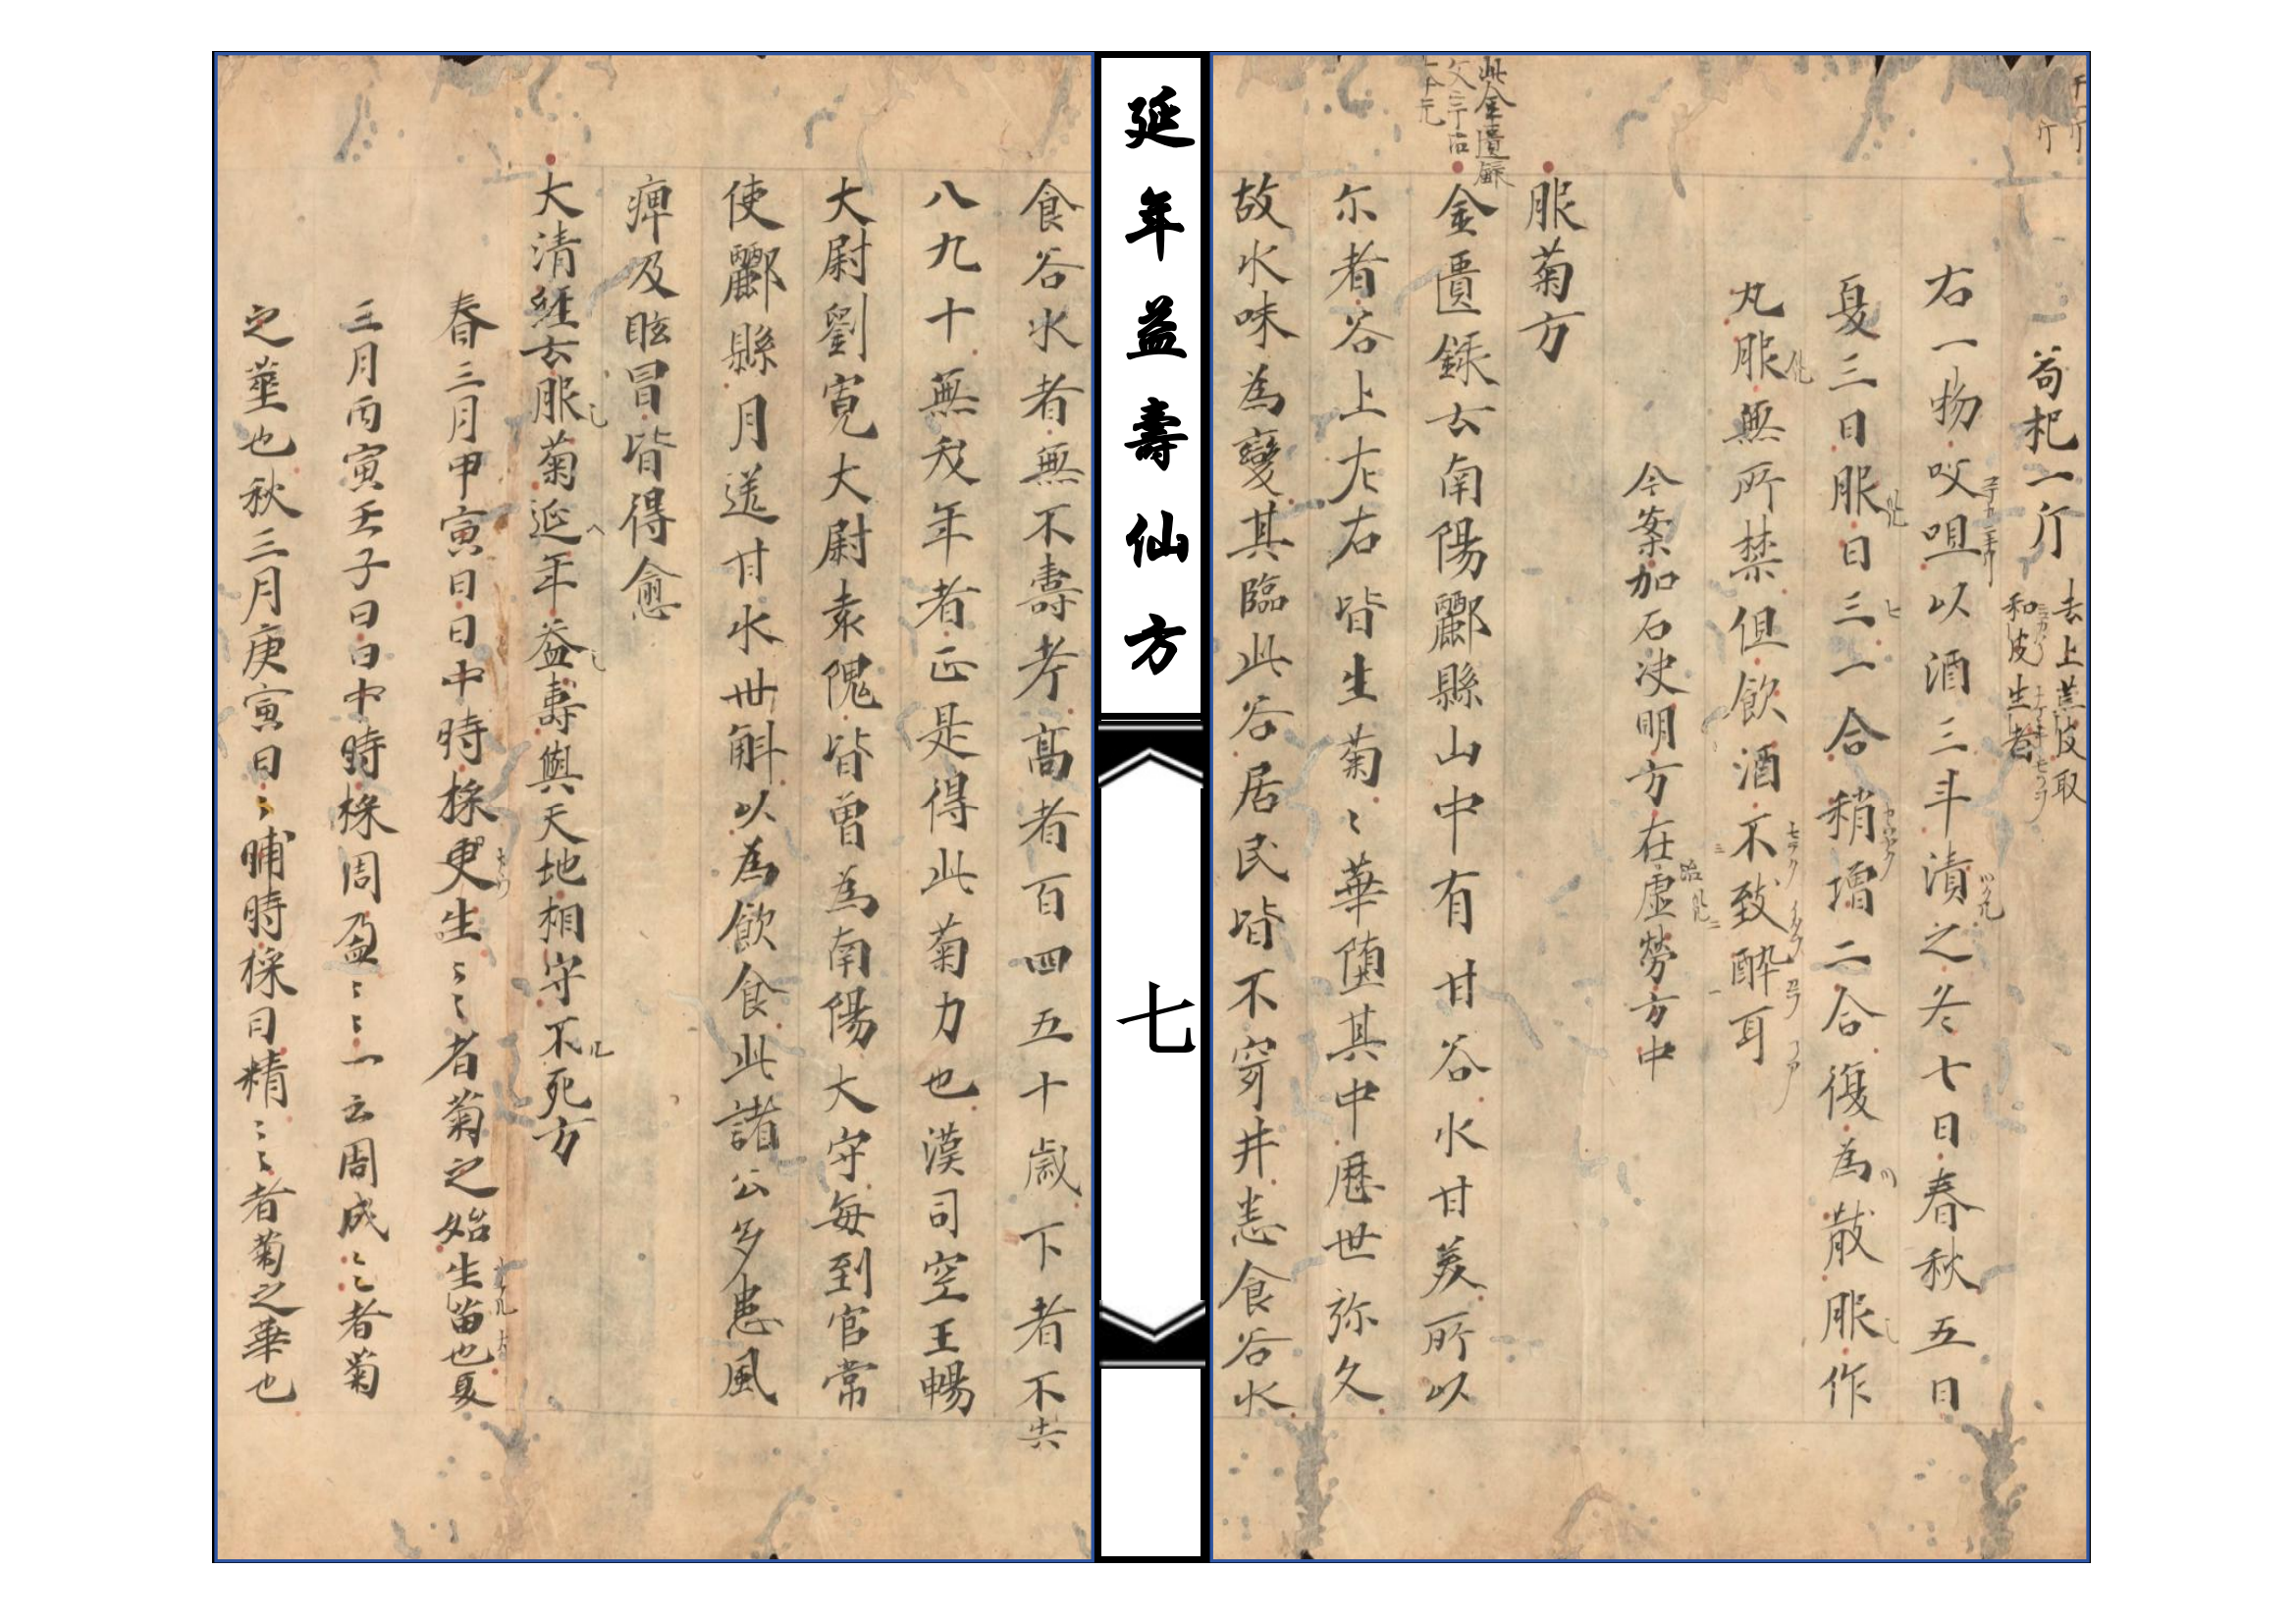 苟杞一斤 去上蔗皮取
和皮生者
右一物㕮咀以酒三斗漬之冬七日春秋五日
夏三日服日三一合稍増二合復為散服作
丸服無所禁但飲酒不致酔耳
今案加石决明方在虚勞方中
服菊方
此金匱録
文字
金匱録云南陽酈縣山中有甘谷水甘美所以
尓者谷上左右皆生菊〻華堕其中歴世弥久
故水味為變其臨此谷居民皆不穿井悉食谷水
延年益壽仙方
七
食谷水者無不壽考髙者百四五十歳下者不失
八九十無夭年者正是得此菊力也漢司空王暢
大尉劉寛大尉袁隗皆曽為南陽大守每到官常
使酈縣月送甘水卌斛以為飲食此諸公多患風
痺及眩冒皆得愈
大清経云服菊延年益壽與天地相守不死方
春三月甲寅日日中時採更生〻〻者菊之始生苗也夏
三月丙寅壬子日日中時採周盈〻〻一云周成〻〻者菊
之莖也秋三月庚寅日〻晡時採日精〻〻者菊之華也